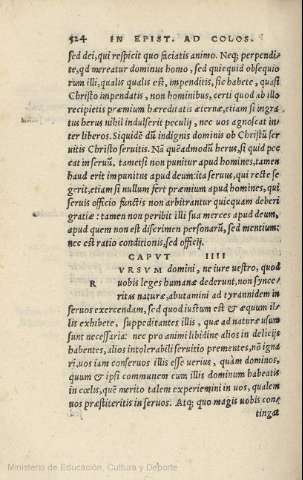 524 IN EPIST. AD COLOS.
sed dei, qui respicit quo faciatis animo. Neq; perpendi‑
te, qd mereatur dominus homo, sed quicquid obsequio
rum illi, qualis qualis est, impenditis, sic habete, quasi
Christo impendatis, non hominibus, certi quod ab illo
recipietis præmium hæreditatis æternæ, etiam si ingra
tus herus nihil indulserit peculij, nec uos agnoscat in‑
ter liberos. Siquidẽ dũ indignis dominis ob Christũ ser
uitis Christo seruitis. Nã quẽadmodũ herus, si quid pec
cat in seruũ, tametsi non punitur apud homines, tamen
haud erit impunitus apud deum: ita seruus, qui recte se
gerit, etiam si nullum fert præmium apud homines, qui
seruis officio functis non arbitrantur quicquam deberi
gratiæ: tamen non peribit illi sua merces apud deum,
apud quem non est discrimen personarũ, sed mentium:
nec est ratio conditionis, sed officij.
CAPVT IIII
R VRSVM domini, ne iure uestro, quod
uobis leges humanæ dederunt, non synce‑
ritas naturæ, abutamini ad tyrannidem in
seruos exercendam, sed quod iustum est & æquum il‑
lis exhibete, suppeditantes illis, quæ ad naturæ usum
sunt necessaria: nec pro animi libidine alios in delicijs
habentes, alios intolerabili seruitio prementes, nõ igna
ri, uos iam conseruos illis esse uerius, quàm dominos,
quum & ipsi communem cum illis dominum habeatis
in cœlis, quẽ merito talem experiemini in uos, qualem
uos præstiteritis in seruos. Atq; quo magis uobis con‑
tingat
Ministerio de Educación, Cultura y Deporte